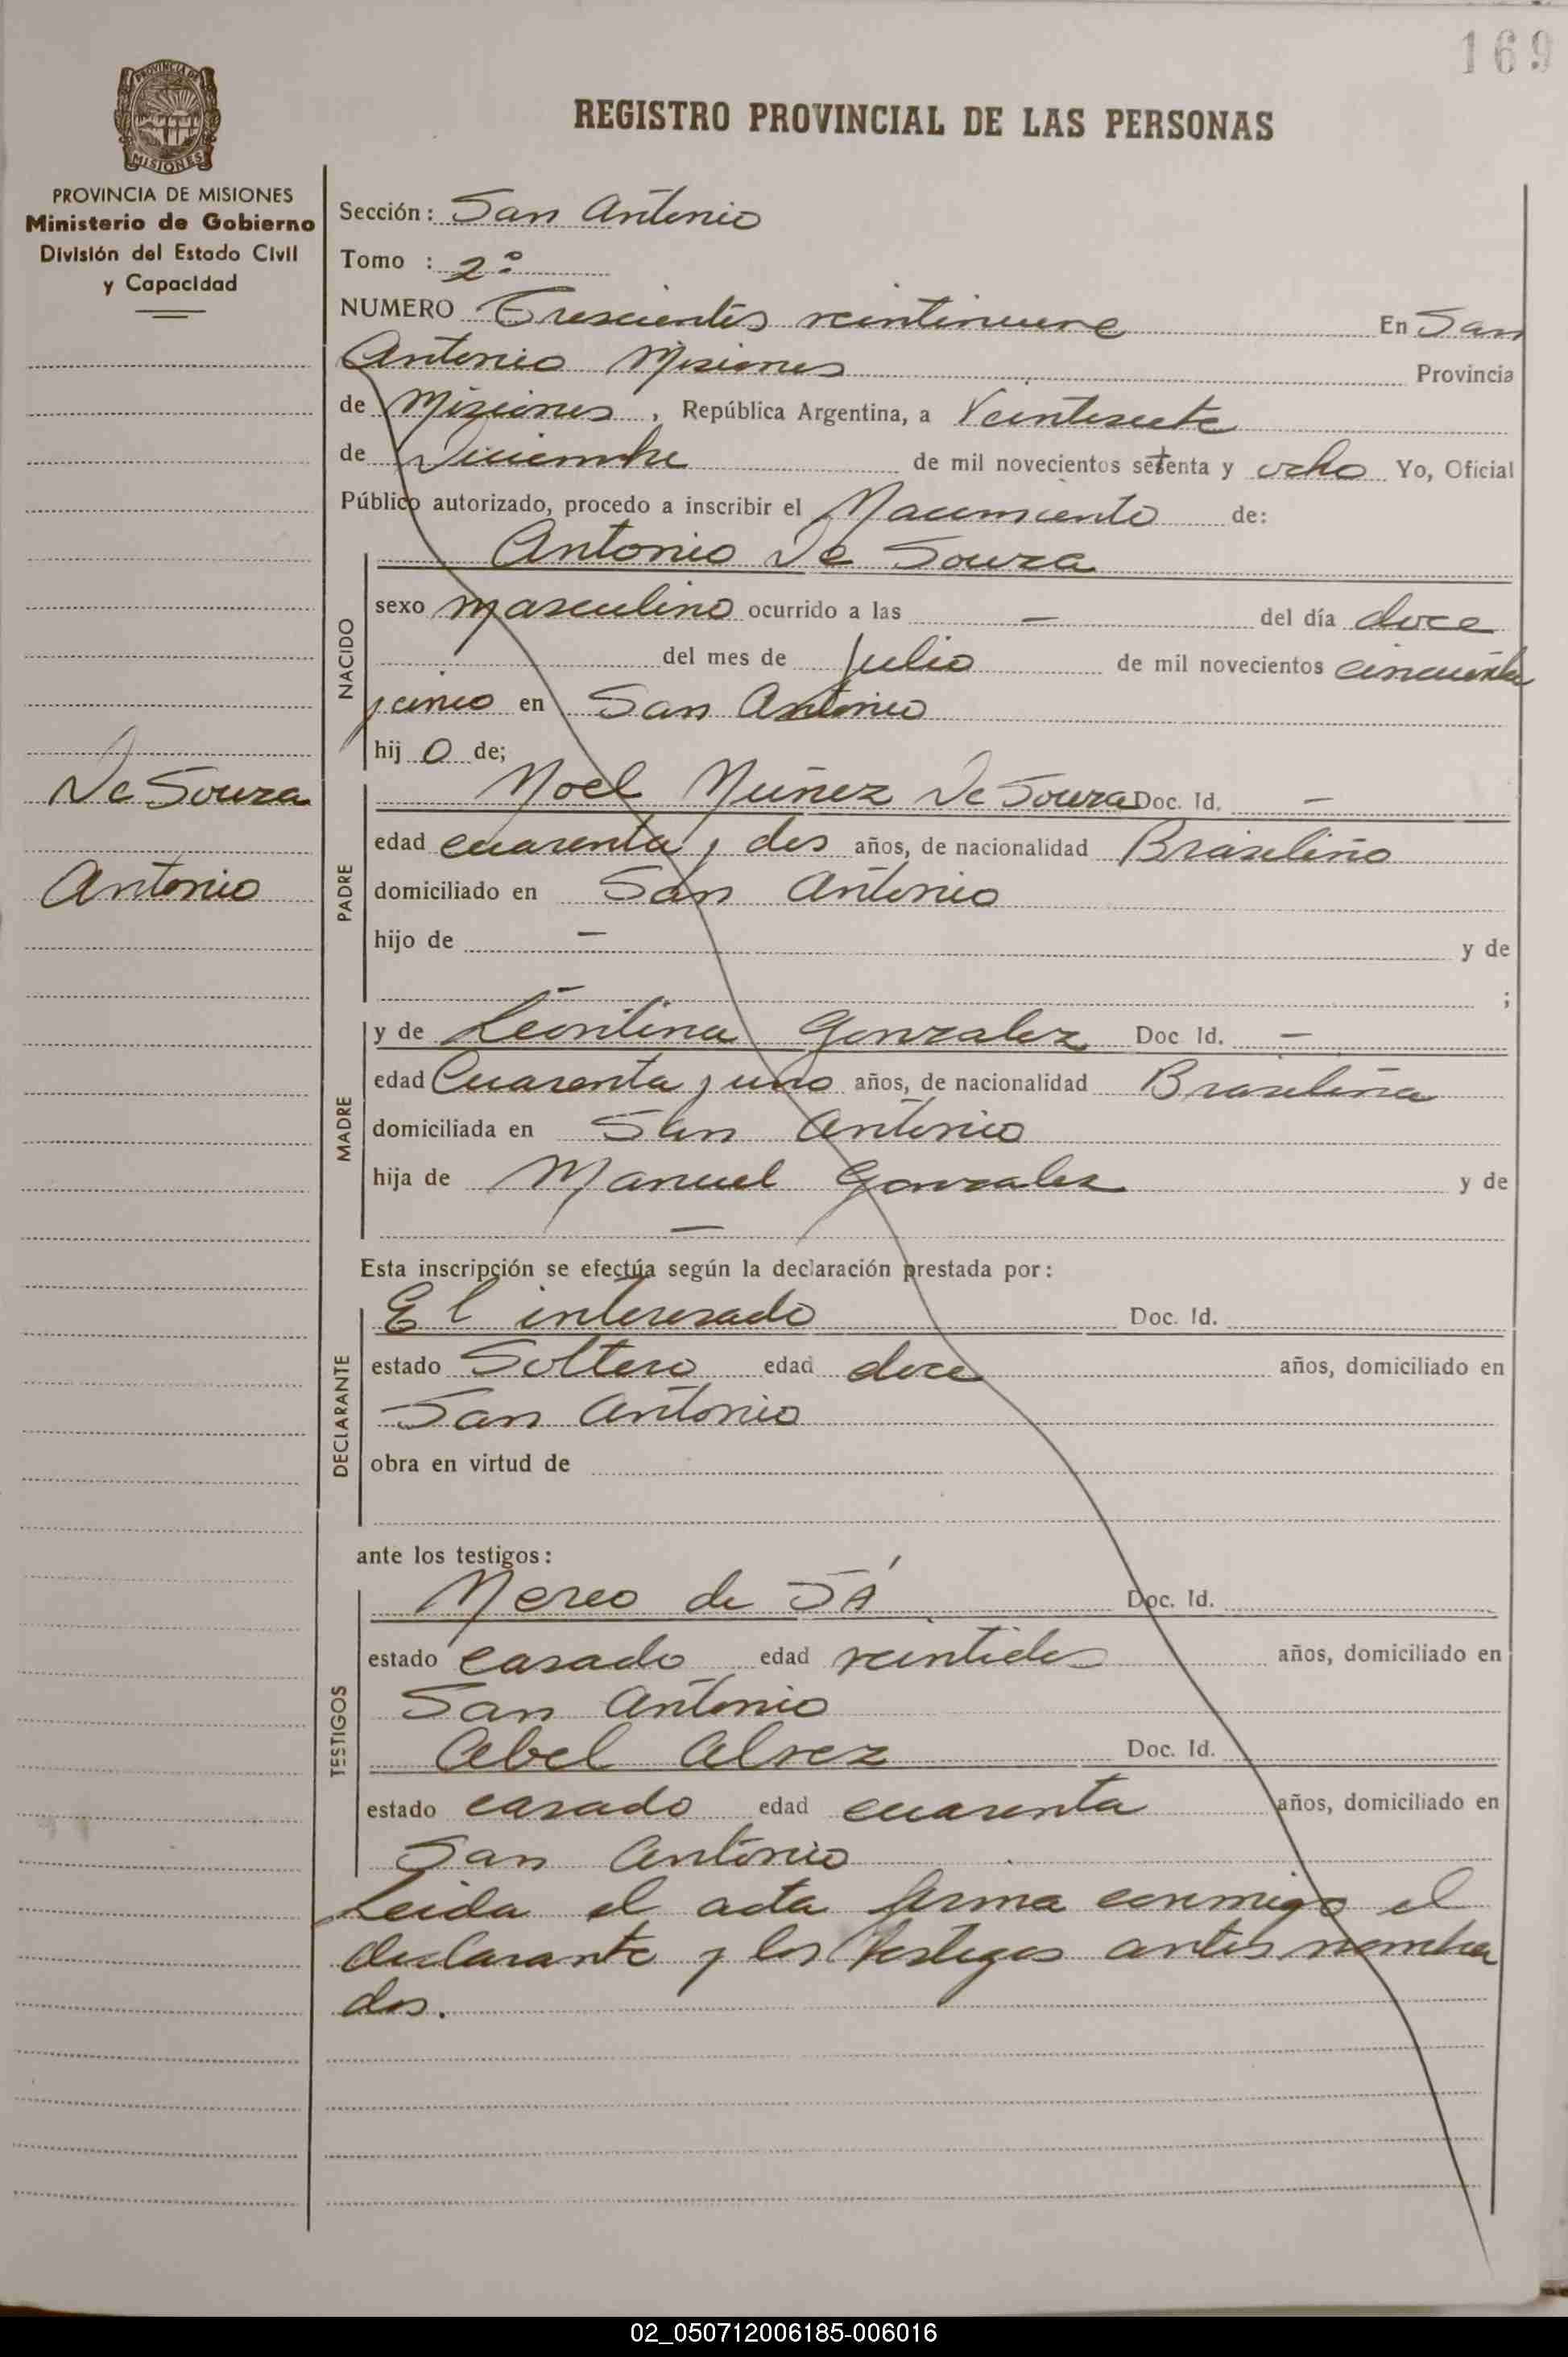 169
PROVINCIA DE
MISIONES
REGISTRO PROVINCIAL DE LAS PERSONAS
PROVINCIA DE MISIONES
Ministerio de Gobierno
División del Estado Civil
y Capacidad
Sección: San Antonio
Tomo : 2º
NUMERO Trescientos veintinueve En San
Antonio Misiones Provincia
de Misiones, República Argentina, a Veintisiete
de Diciembre de mil novecientos setenta y ocho Yo, Oficial
Público autorizado, procedo a inscribir el Nacimiento de:
Antonio De Souza
NACIDO
sexo masculino ocurrido a las — del día doce
del mes de Julio de mil novecientos cincuenta
y cinco en San Antonio
hij o de;
De Souza
Antonio
PADRE
Noel Nuñez De Souza Doc. Id. —
edad cuarenta y dos años, de nacionalidad Brasileño
domiciliado en San Antonio
hijo de — y de
— ;
MADRE
y de Leontina Gonzalez Doc Id. —
edad Cuarenta y uno años, de nacionalidad Brasileña
domiciliada en San Antonio
hija de Manuel Gonzalez y de
—
Esta inscripción se efectúa según la declaración prestada por:
DECLARANTE
El interesado Doc. Id.
estado Soltero edad doce años, domiciliado en
San Antonio
obra en virtud de
ante los testigos:
TESTIGOS
Nereo de SÁ Doc. Id.
estado casado edad veintidos años, domiciliado en
San Antonio
Abel Alvez Doc. Id.
estado casado edad cuarenta años, domiciliado en
San Antonio
Leida el acta firma conmigo el
declarante y los testigos antes nombra
dos.
02_050712006185-006016